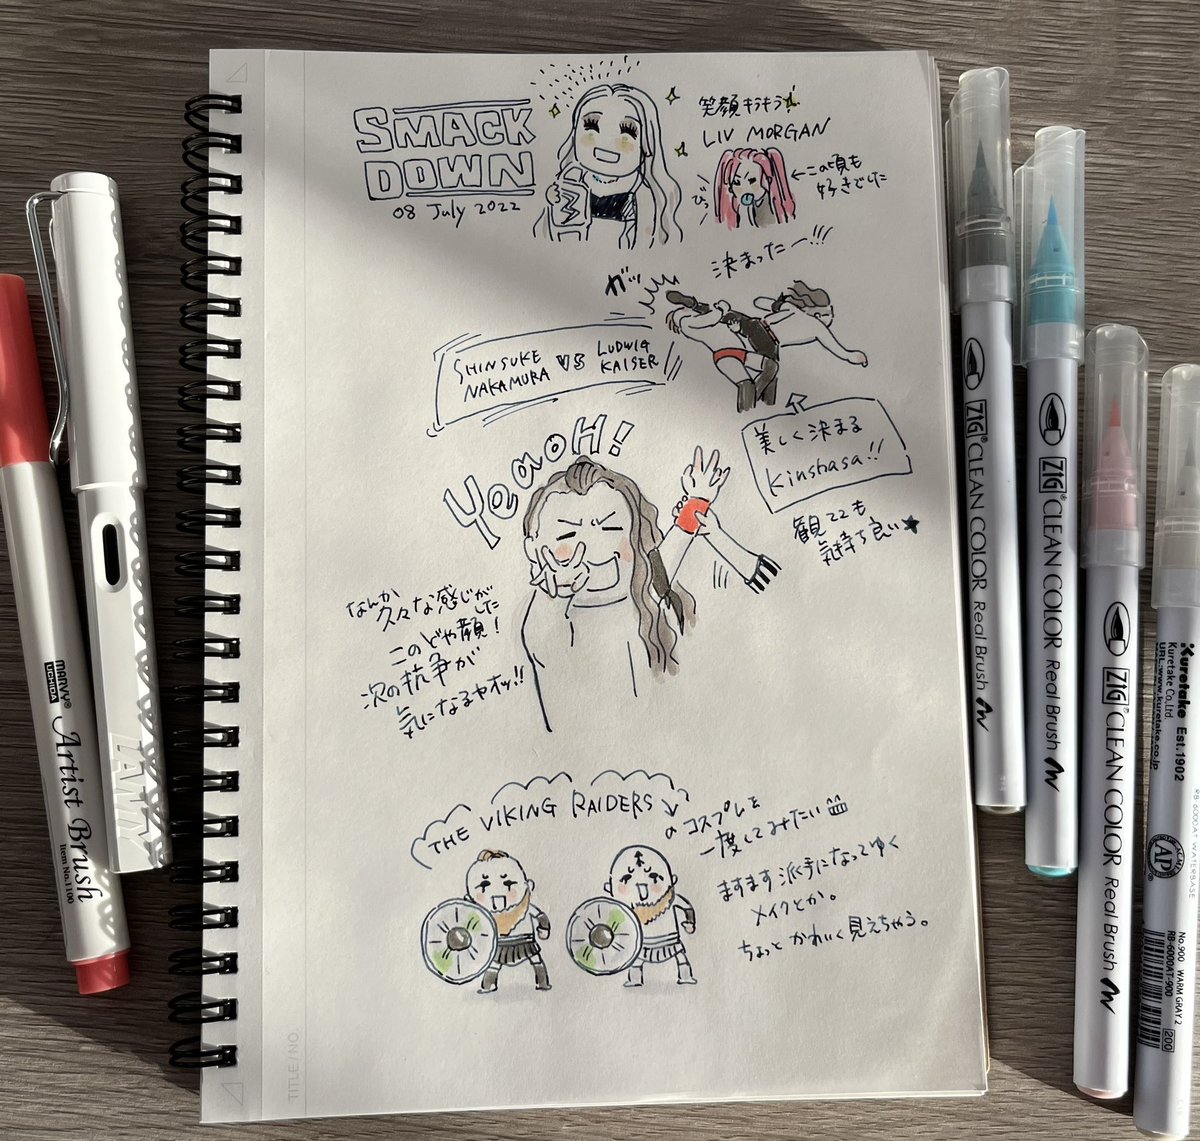 SMACK
DOWN
08 July 2022
笑顔キラキラ!
LIV MORGAN
←この頃も
好きでした
べっ
決まったー!!!
ガッ
SHINSUKE
NAKAMURA VS LUDWIG
KAISER
美しく決まる
Kinshasa!!
観てても
気持ち良い★
YeaoH!
なんか
久々な感じがした
このどや顔!
次の抗争が
気になるヤオッ!!
THE VIKING RAIDERS
のコスプレを
一度してみたい
ますます派手になってゆく
メイクとか。
ちょっとかわいく見えちゃう。
TITLE/NO.
MARVY®
UCHIDA
Artist Brush
Item No.1100
LAMY
ZIG® CLEAN COLOR Real Brush
ZIG® CLEAN COLOR Real Brush
ZIG® CLEAN COLOR Real Brush
Kuretake Est.1902
Kuretake Co.,Ltd.
URL:www.kuretake.co.jp
RB-6000AT WATERBASE
AP
No.900 WARM GRAY 2
RB-6000AT-900
200